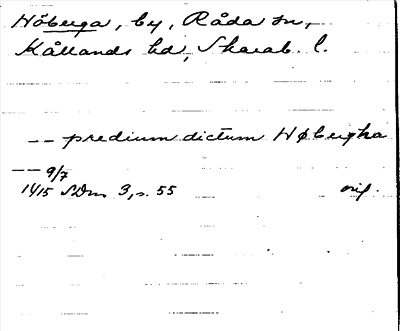 Höberga, by, Råda sn,
Kållands hd, Skarab. l.
-- predium dictum Høbergha
-- 9/7
1415 SDns 3, s. 55 orig.